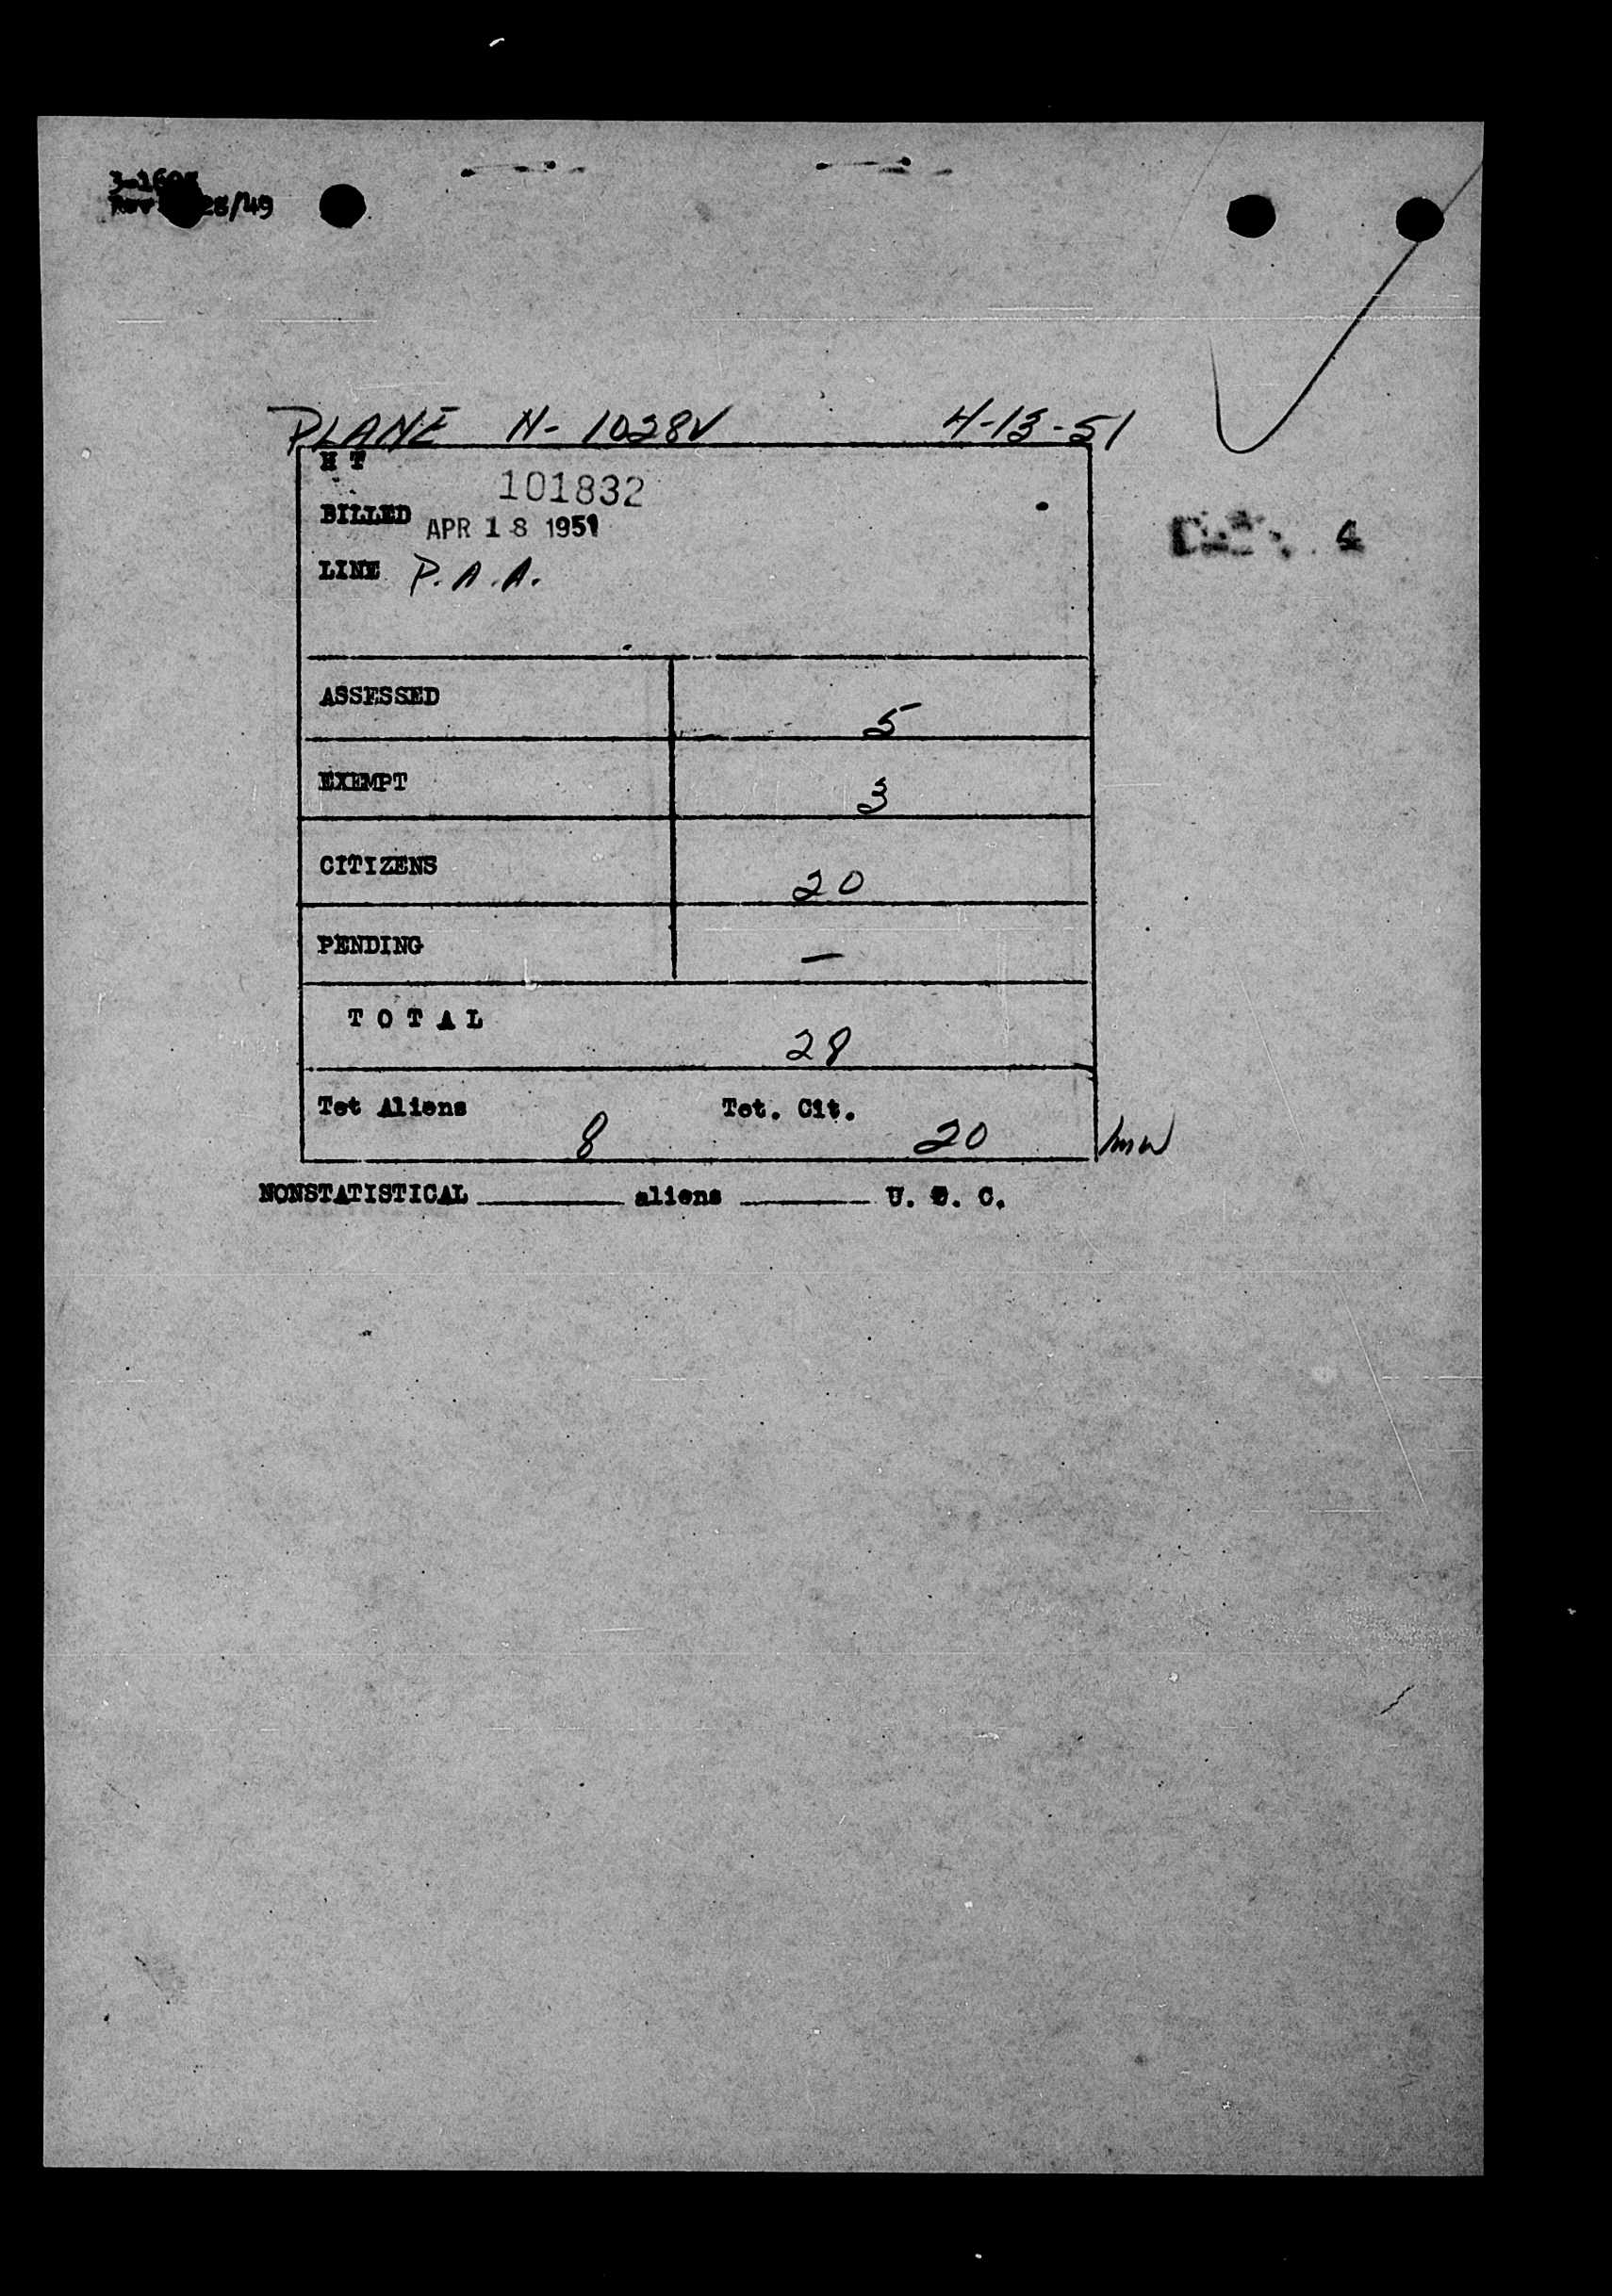 28/49
PLANE N-1028V 4-13-51
H T
101832
BILLED APR 18 1951
LINE P.A.A.
ASSESSED 5
EXEMPT 3
CITIZENS 20
PENDING —
TOTAL 28
Tot Aliens 8 Tot. Cit. 20 /mw
NONSTATISTICAL ______ aliens ______ U. S. C.
4